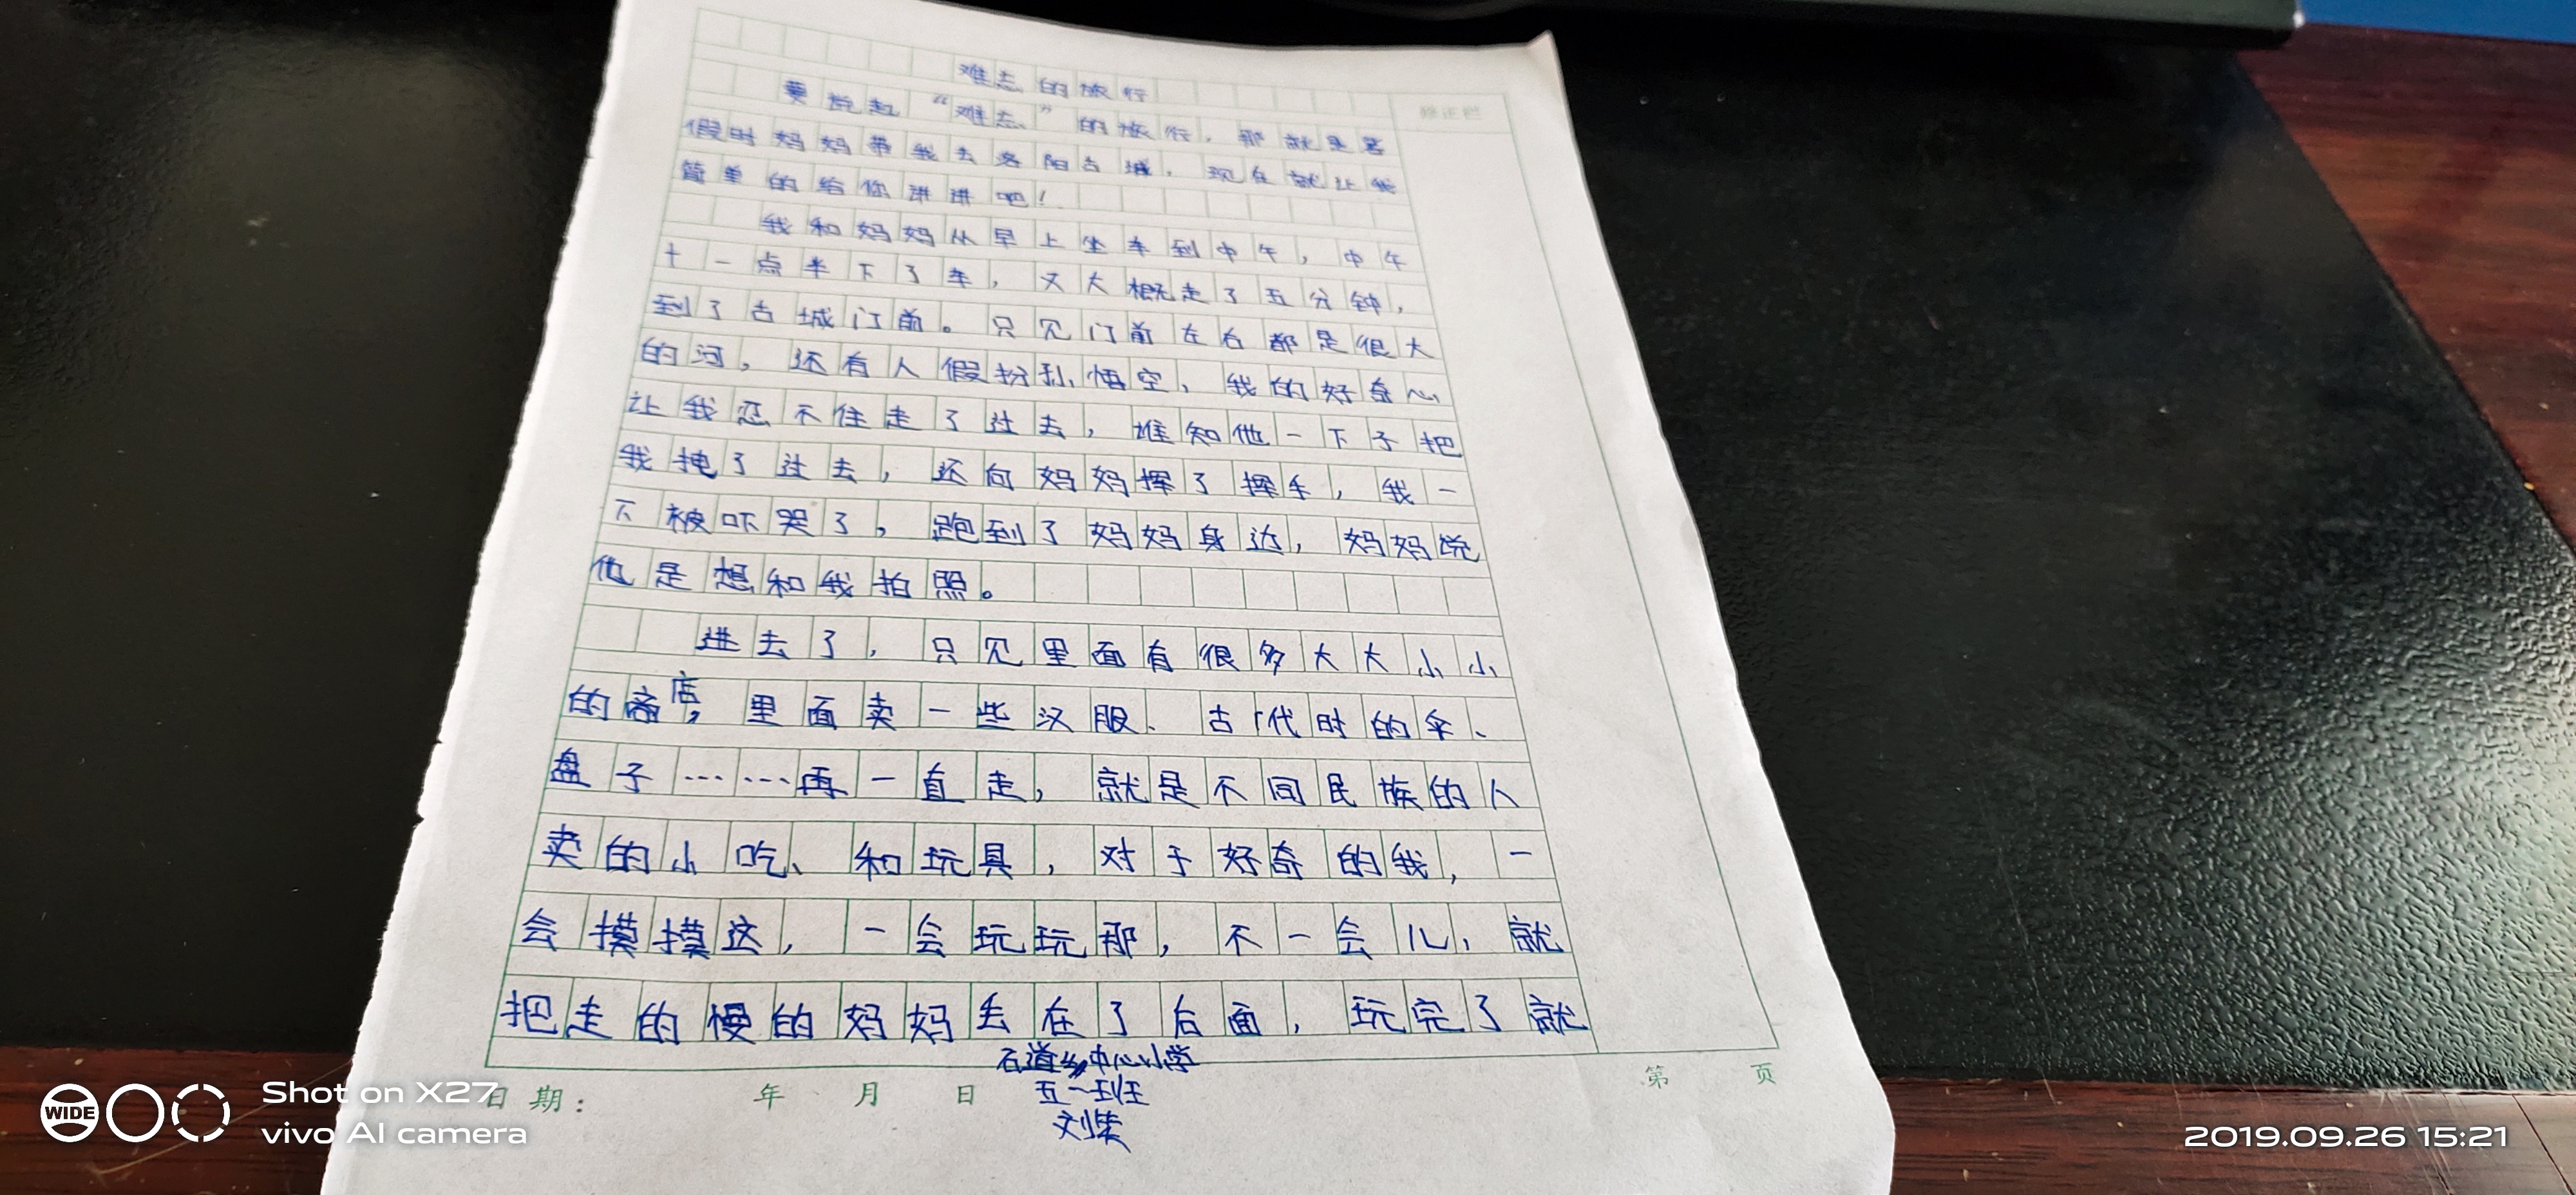 难忘的旅行
要说起“难忘”的旅行,那就是暑
假时妈妈带我去洛阳古城,现在就让我
简单的给你讲讲吧!
我和妈妈从早上坐车到中午,中午
十一点半下了车,又大概走了五分钟,
到了古城门前。只见门前左右都是很大
的河,还有人假扮孙悟空,我的好奇心
让我忍不住走了过去,谁知他一下子把
我拽了过去,还向妈妈挥了挥手,我一
下被吓哭了,跑到了妈妈身边,妈妈说
他是想和我拍照。
进去了,只见里面有很多大大小小
的商店,里面卖一些汉服、古代时的伞、
盘子……再一直走,就是不同民族的人
卖的小吃、和玩具,对于好奇的我,一
会摸摸这,一会玩玩那,不一会儿,就
把走的慢的妈妈丢在了后面,玩完了就
石道乡中心小学
日期: 年 月 日 第 页
五一班
刘柴
WIDE
Shot on X27
vivo AI camera
2019.09.26 15:21
修正栏